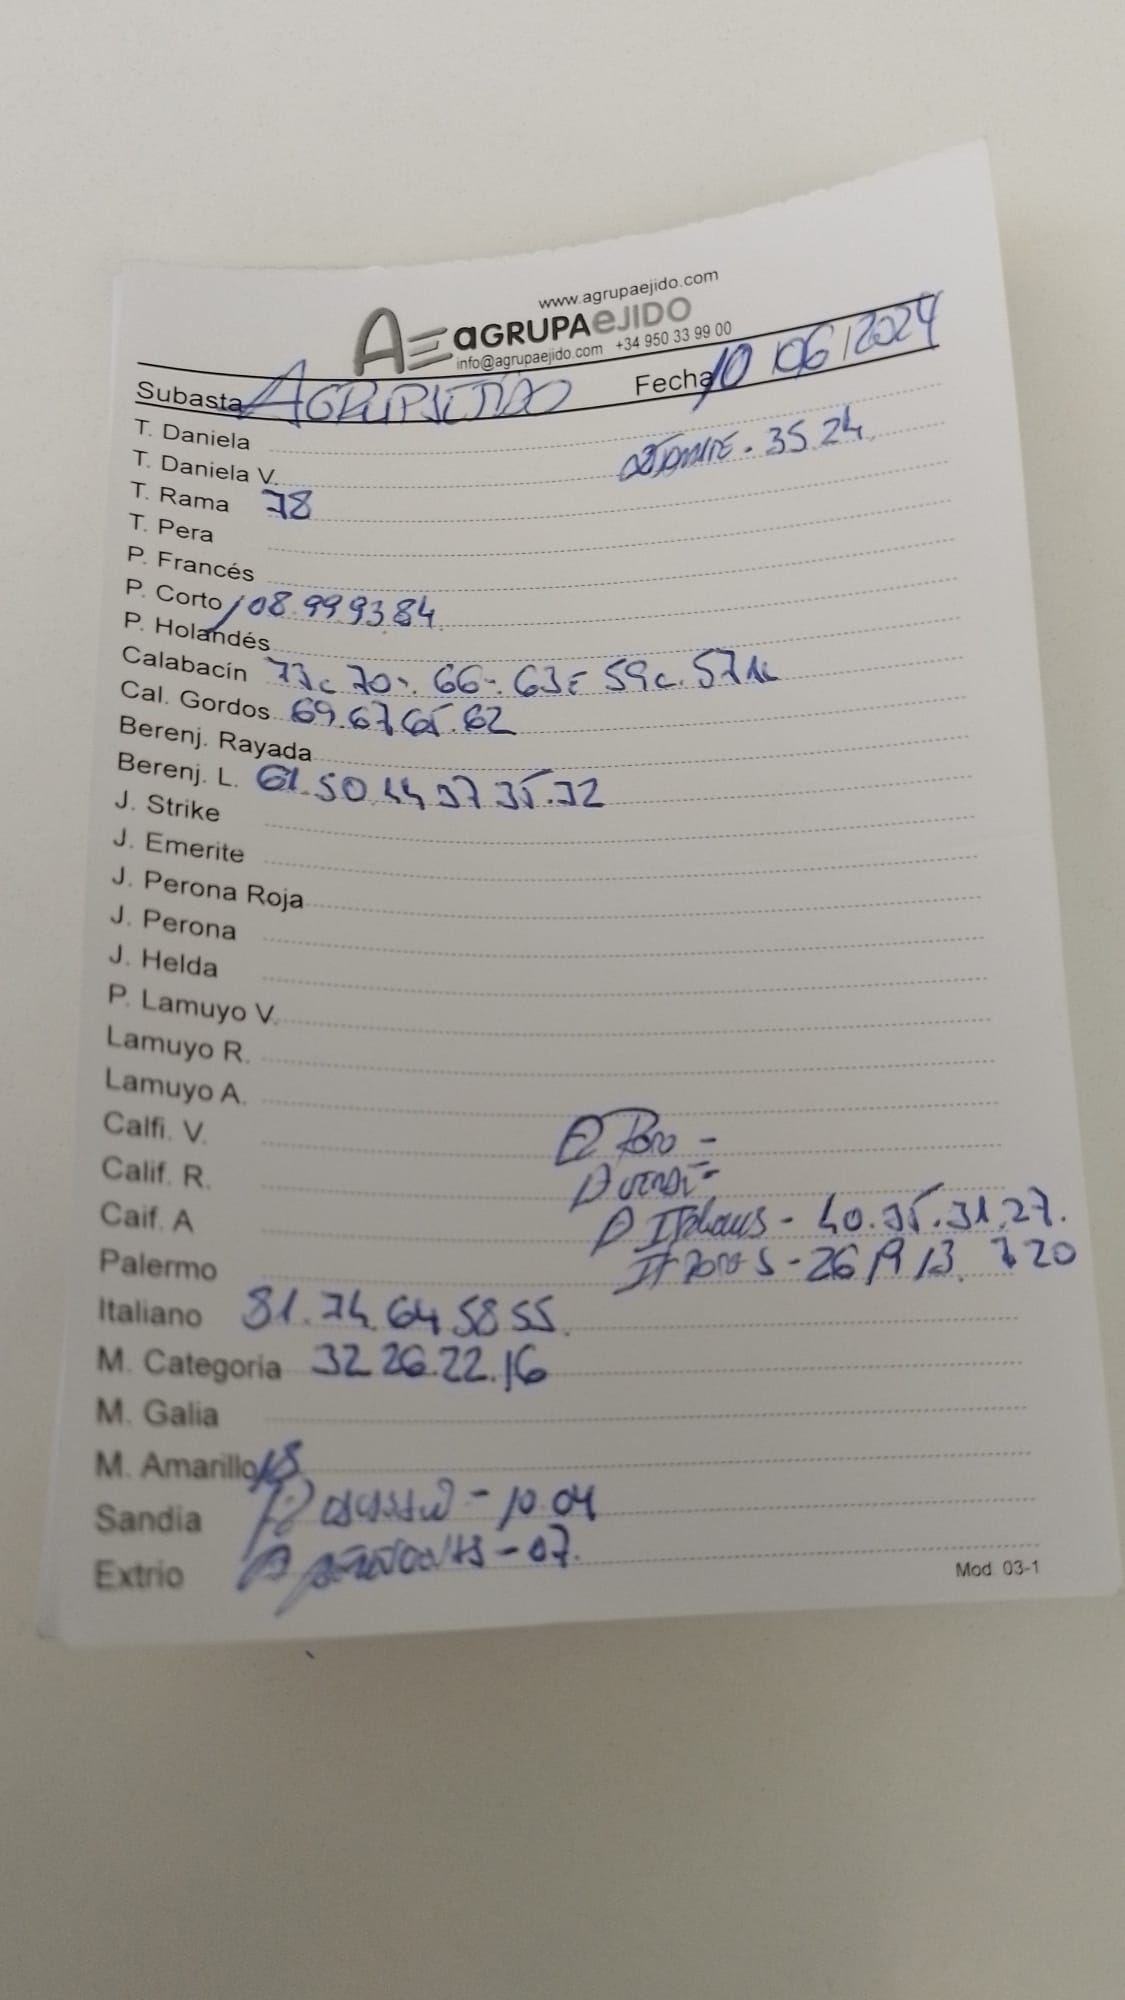 www.agrupaejido.com
AE aGRUPAeJIDO
info@agrupaejido.com +34 950 33 99 00
Subasta AGRUPAEJIDO Fecha 10/06/2024
T. Daniela
T. Daniela V. 35.24
T. Rama 78
T. Pera
P. Francés
P. Corto 108.99 93 84
P. Holandés
Calabacín 77c 70-. 66-. 63 59c. 57
Cal. Gordos 69.67 65.62
Berenj. Rayada
Berenj. L. 61.50.44 37 35.32
J. Strike
J. Emerite
J. Perona Roja
J. Perona
J. Helda
P. Lamuyo V.
Lamuyo R.
Lamuyo A.
Calfi. V.
Calif. R.
Caif. A 40.35.31.27.
Palermo 26 19 13
Italiano 81.74.64 58 55.
M. Categoria 32 26.22.16
M. Galia
M. Amarillo 18
Sandia - 10.04
Extrio - 07.
Mod. 03-1